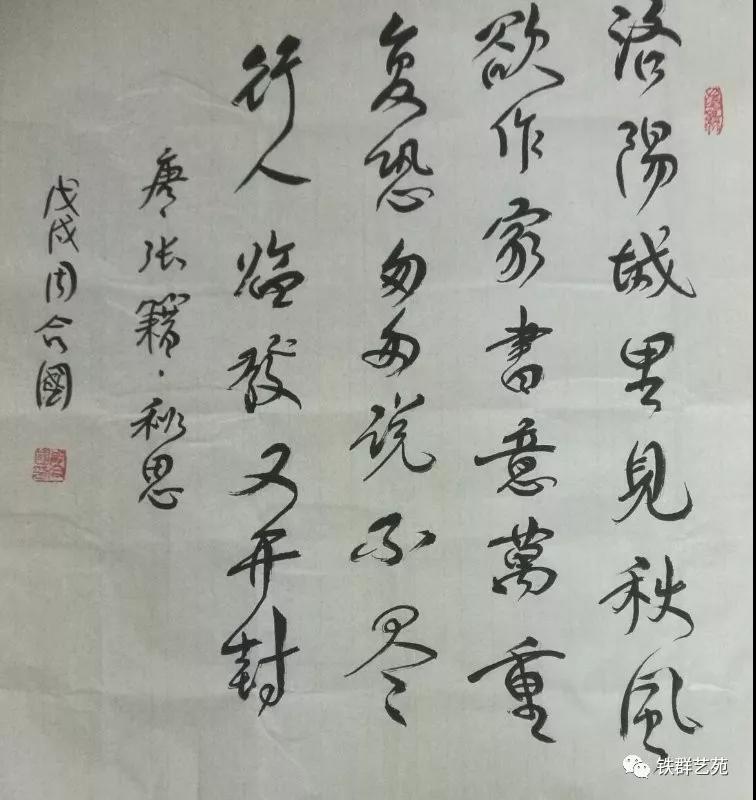 洛陽城里見秋風
欲作家書意萬重
复恐匆匆说不尽
行人临发又开封
唐张籍·秋思
戊戌周合國
铁群艺苑